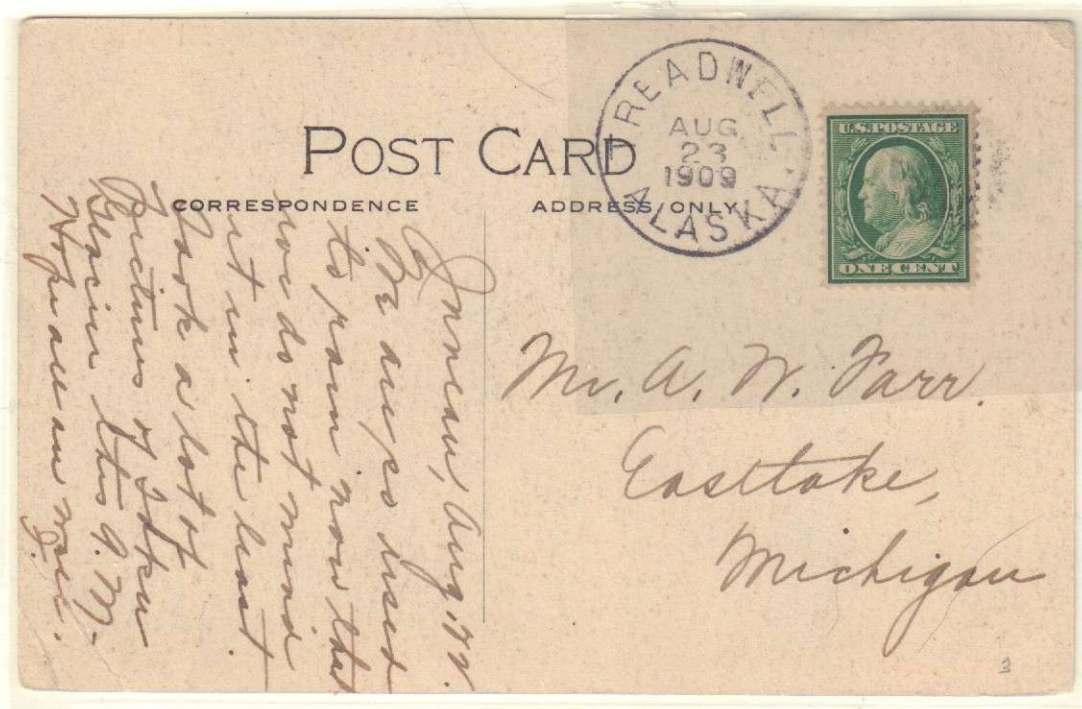 POST CARD
CORRESPONDENCE
ADDRESS ONLY
TREADWELL
AUG
23
1909
ALASKA.
U.S. POSTAGE
ONE CENT
Juneau, Aug.
We are so used
to rain now that
now do not mind
it in the least
Took a lot of
Pictures of Taku
Glacier this A.M.
Hope all are well.
Mr. A. W. Farr.
Eastlake,
Michigan
3